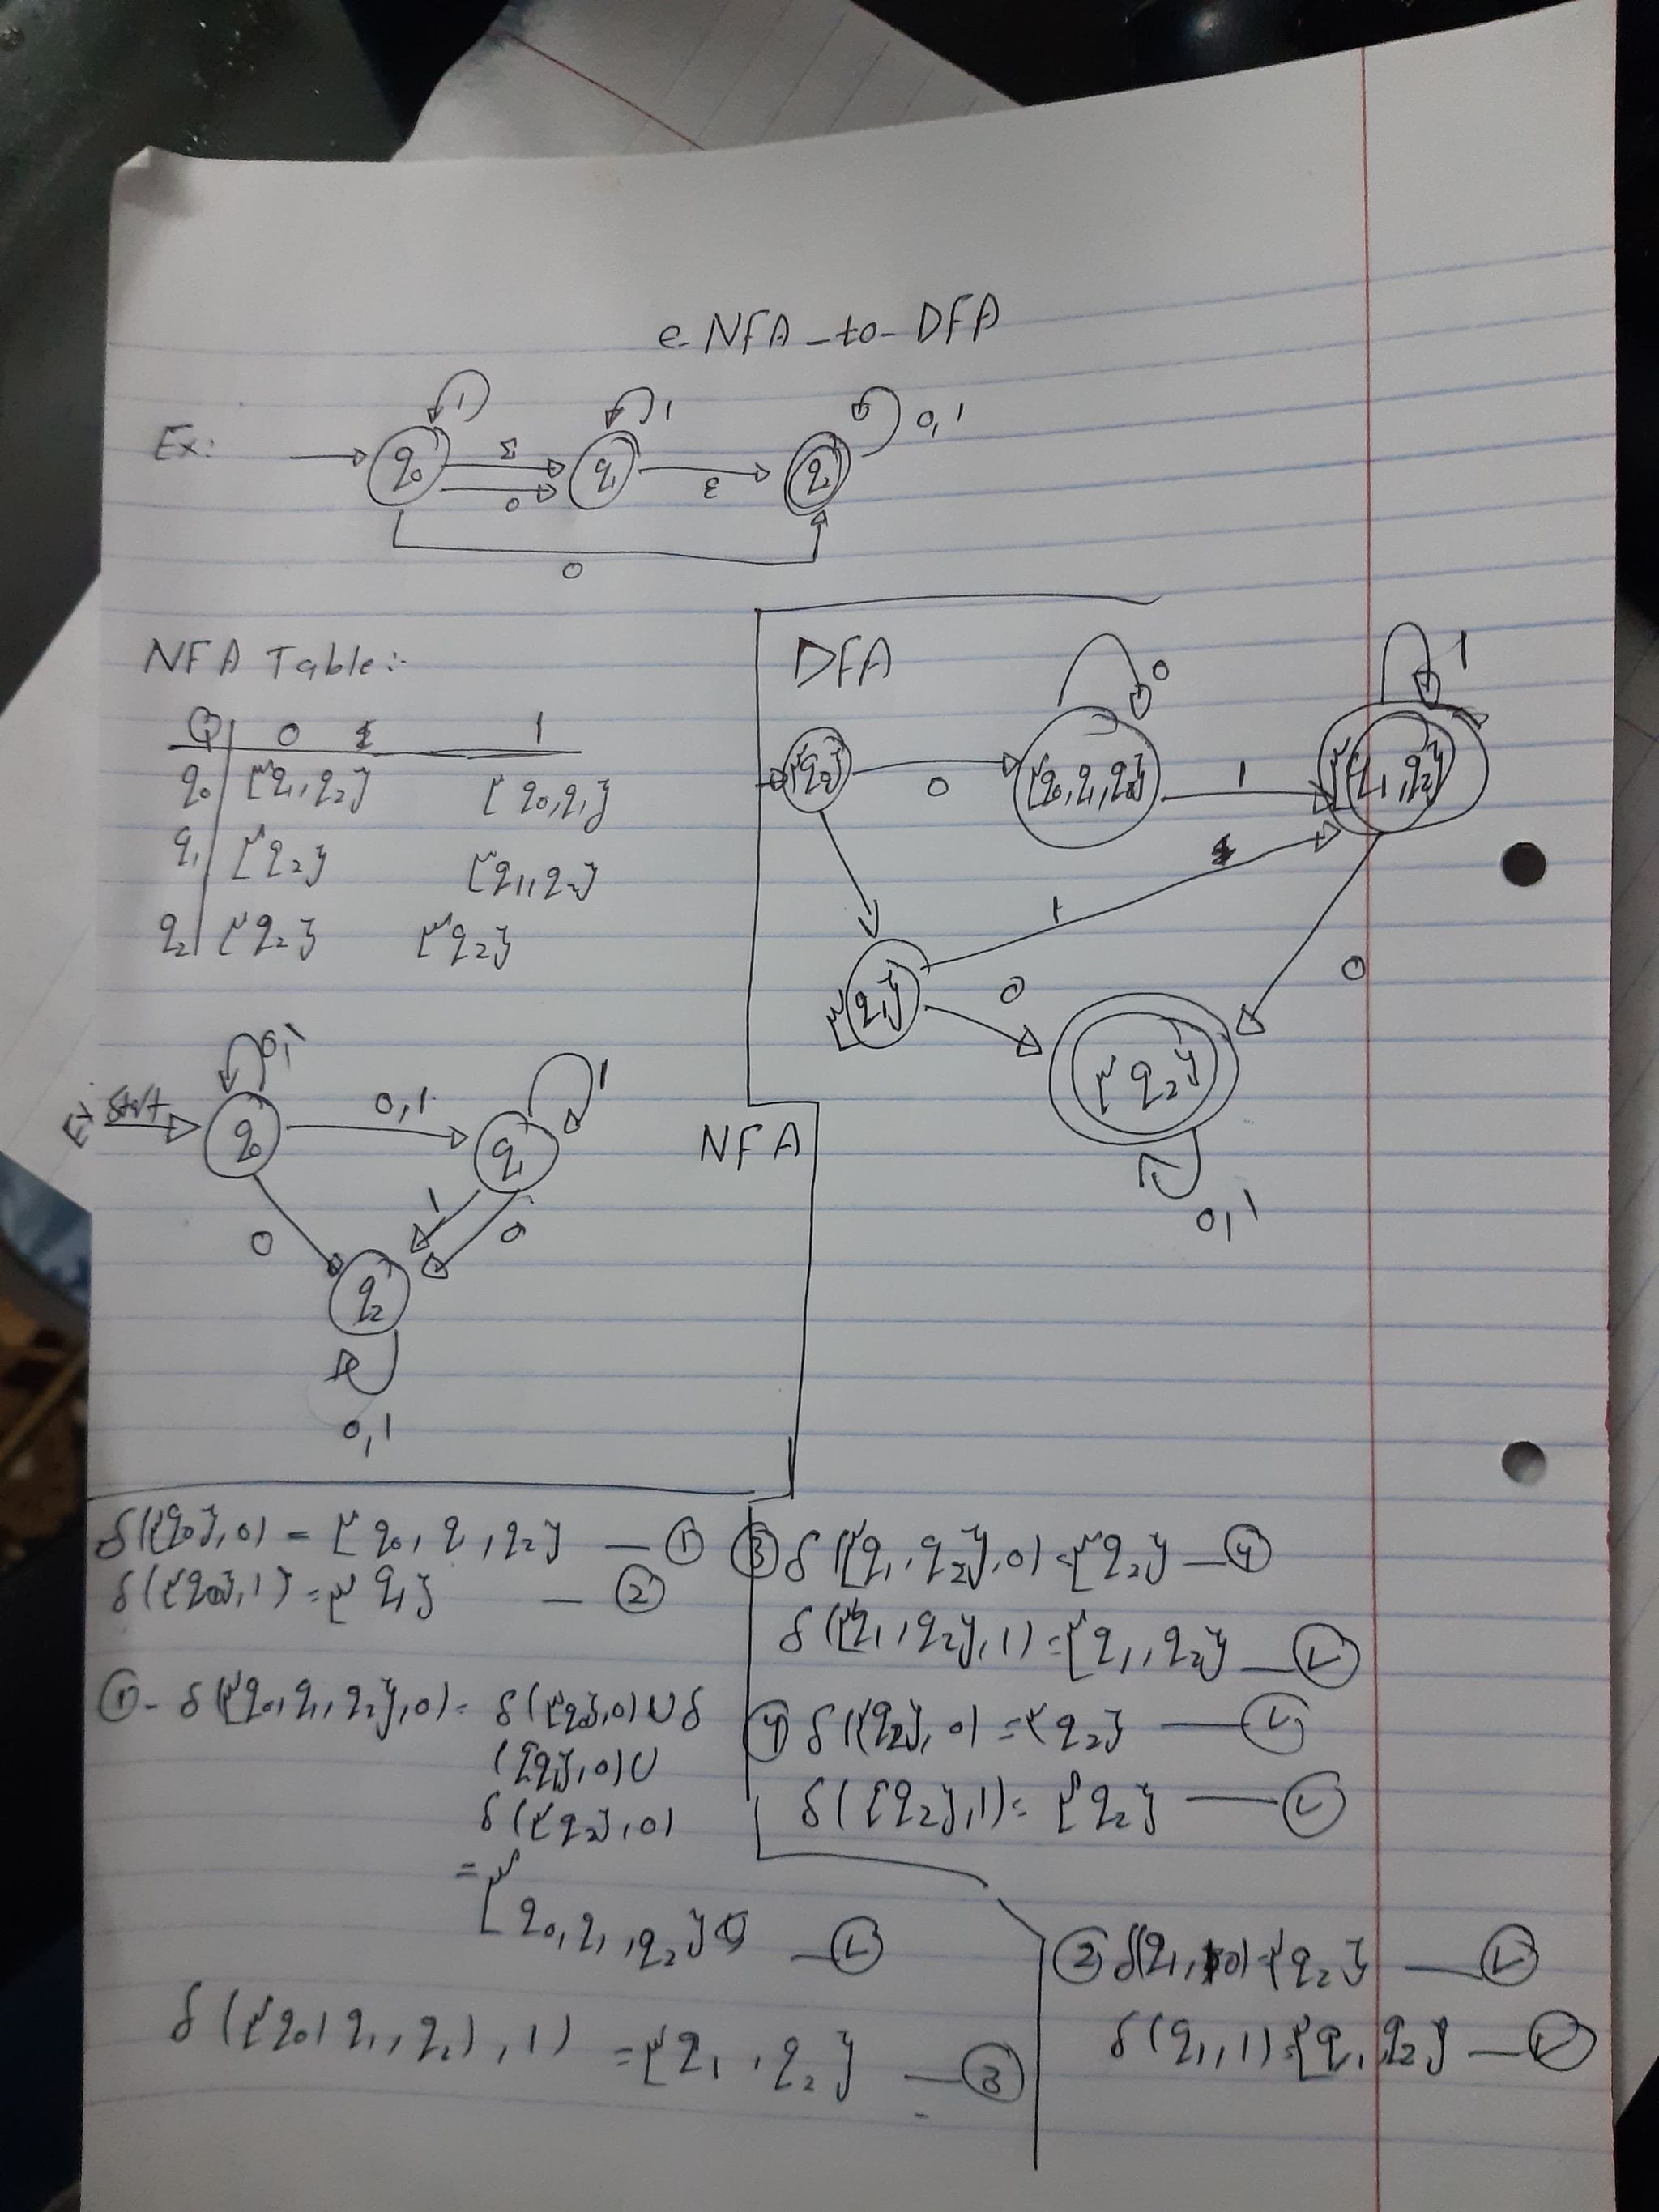 e-NFA-to-DFA
Ex:
1
1
0,1
q0
ε
q1
ε
q2
0
0
NFA Table:-
Q 0 1
q0 {q1,q2} {q0,q1}
q1 {q2} {q1,q2}
q2 {q2} {q2}
DFA
0
1
{q0}
0
{q0,q1,q2}
1
{q1,q2}
1
{q1}
0
0
{q2}
0,1
0,1
1
Start
q0
0,1
q1
NFA
0
1
0
q2
0,1
δ({q0},0) = {q0,q1,q2} — ①
δ({q0},1) = {q1} — ②
①- δ({q0,q1,q2},0) = δ({q0},0) ∪ δ
({q1},0) ∪
δ({q2},0)
= {q0,q1,q2}
δ({q0,q1,q2),1) = {q1,q2} — ③
③ δ({q1,q2},0) = {q2} — ④
δ({q1,q2},1) = {q1,q2} — ✓
④ δ({q2},0) = {q2} — ✓
δ({q2},1) = {q2} — ✓
② δ(q1,0) = {q2} — ✓
δ(q1,1) = {q1,q2} — ✓